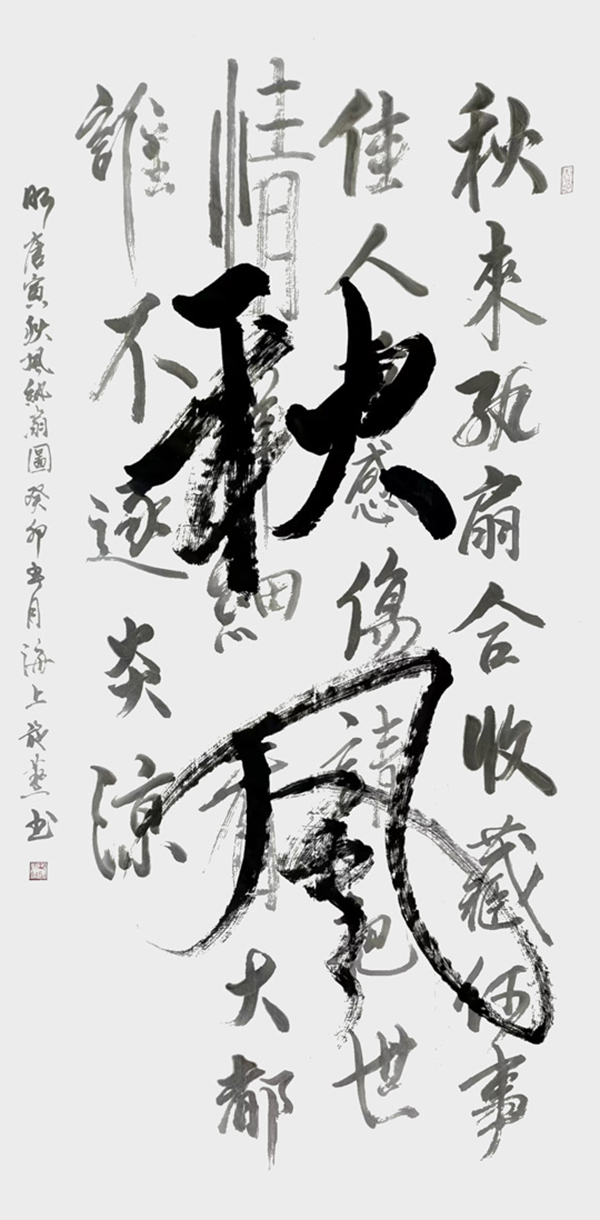 秋來紈扇合收藏何事
佳人重感傷請把世
情詳細看大都
誰不逐炎涼
秋風
明唐寅秋風紈扇圖癸卯月海上燕书